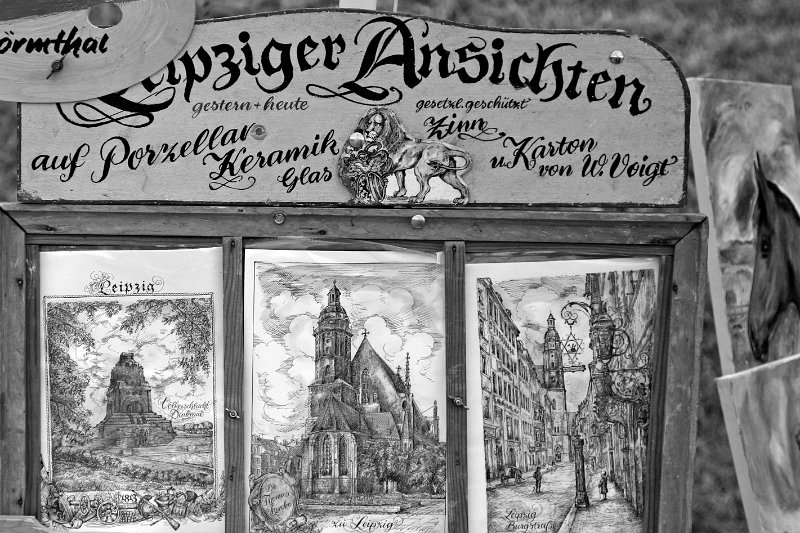 örmthal
Leipziger Ansichten
gestern + heute
gesetzl. geschützt
auf Porzellan
Keramik
Glas
Zinn
u. Karton
von W. Voigt
Leipzig
Völkerschlacht
Denkmal
1813
Die
Thomas
Kirche
zu Leipzig
Leipzig
Burgstraße